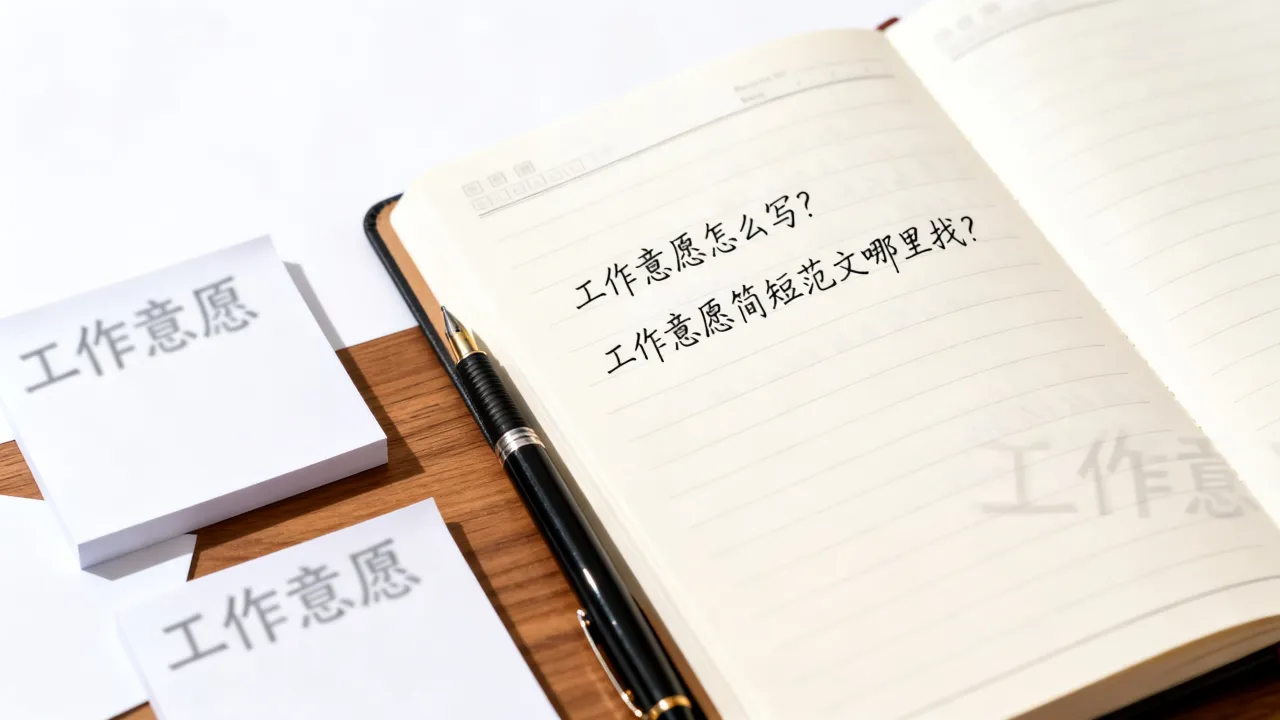 工作意愿怎么写?
工作意愿简短范文哪里找?
工作意愿
工作意愿
工作意